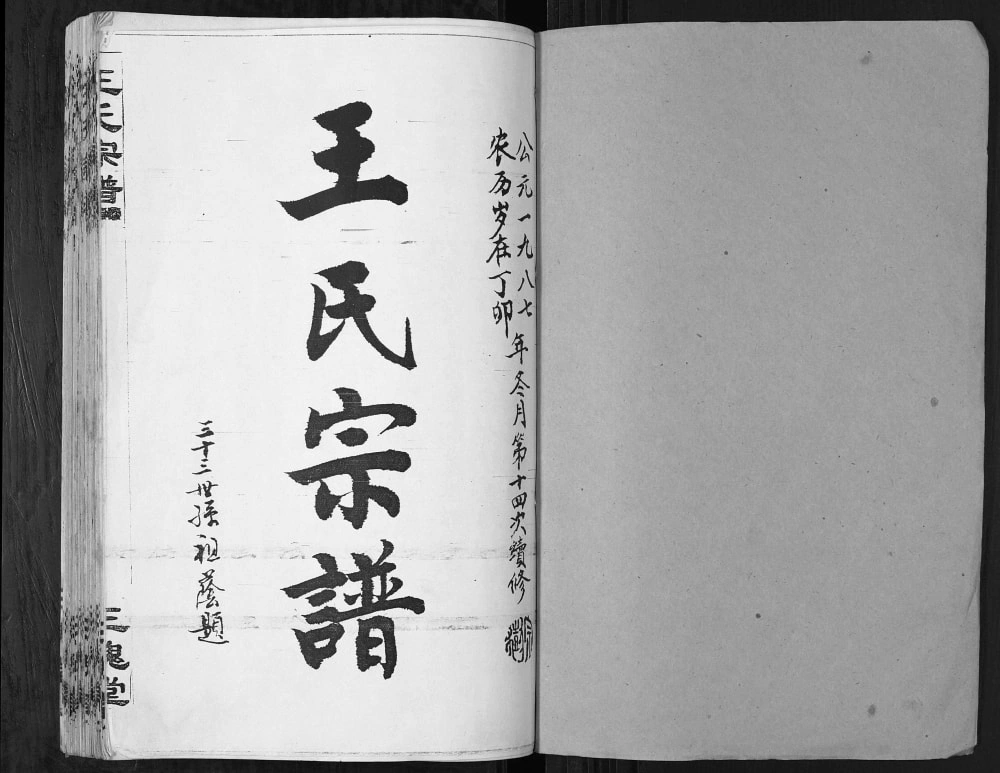 公元一九八七年冬月第十四次續修
农历岁在丁卯
王氏宗譜
三十三世孫祖蔭題
王氏宗譜
三槐堂